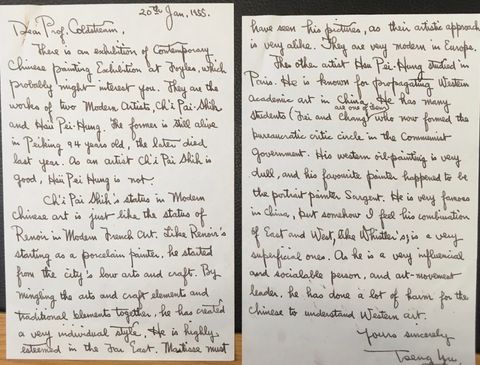 20th Jan, 1955.
Dear Prof. Coldstream,
There is an exhibition of Contemporary
Chinese painting Exhibition at Foyles, which
probably might interest you. They are the
works of two Modern Artists, Ch'i Pai-Shih
and Hsü Pei-Hung. The former is still alive
in Peiking 94 years old, the later died
last year. As an artist Ch'i Pai Shih is
good, Hsü Pei Hung is not.
Ch'i Pai Shih's status in Modern
Chinese art is just like the status of
Renoir in Modern French Art. Like Renoir's
starting as a porcelain painter, he started
from the city's low arts and craft. By
mingling the arts and craft element and
traditional elements together, he has created
a very individual style. He is highly
esteemed in the Far East. Maitisse must
have seen his pictures, as their artistic approach
is very alike. They are very modern in Europe.
The other artist Hsü Pei-Hung studied in
Paris. He is known for propagating Western
academic art in China. He has many
students (Fei and Chang are one of them) who now formed the
bureaucratic critic circle in the Communist
Government. His western oil-painting is very
dull, and his favourite painter happened to be
the potrait painter Sargent. He is very famous
in China, but somehow I feel his combination
of East and West, like Whistler's, is a very
superficial ones. As he is a very influencial
and socialable person, and art-movement
leader, he has done a lot of harm for the
Chinese to understand Western art.
Yours sincerely
Tseng Yu.